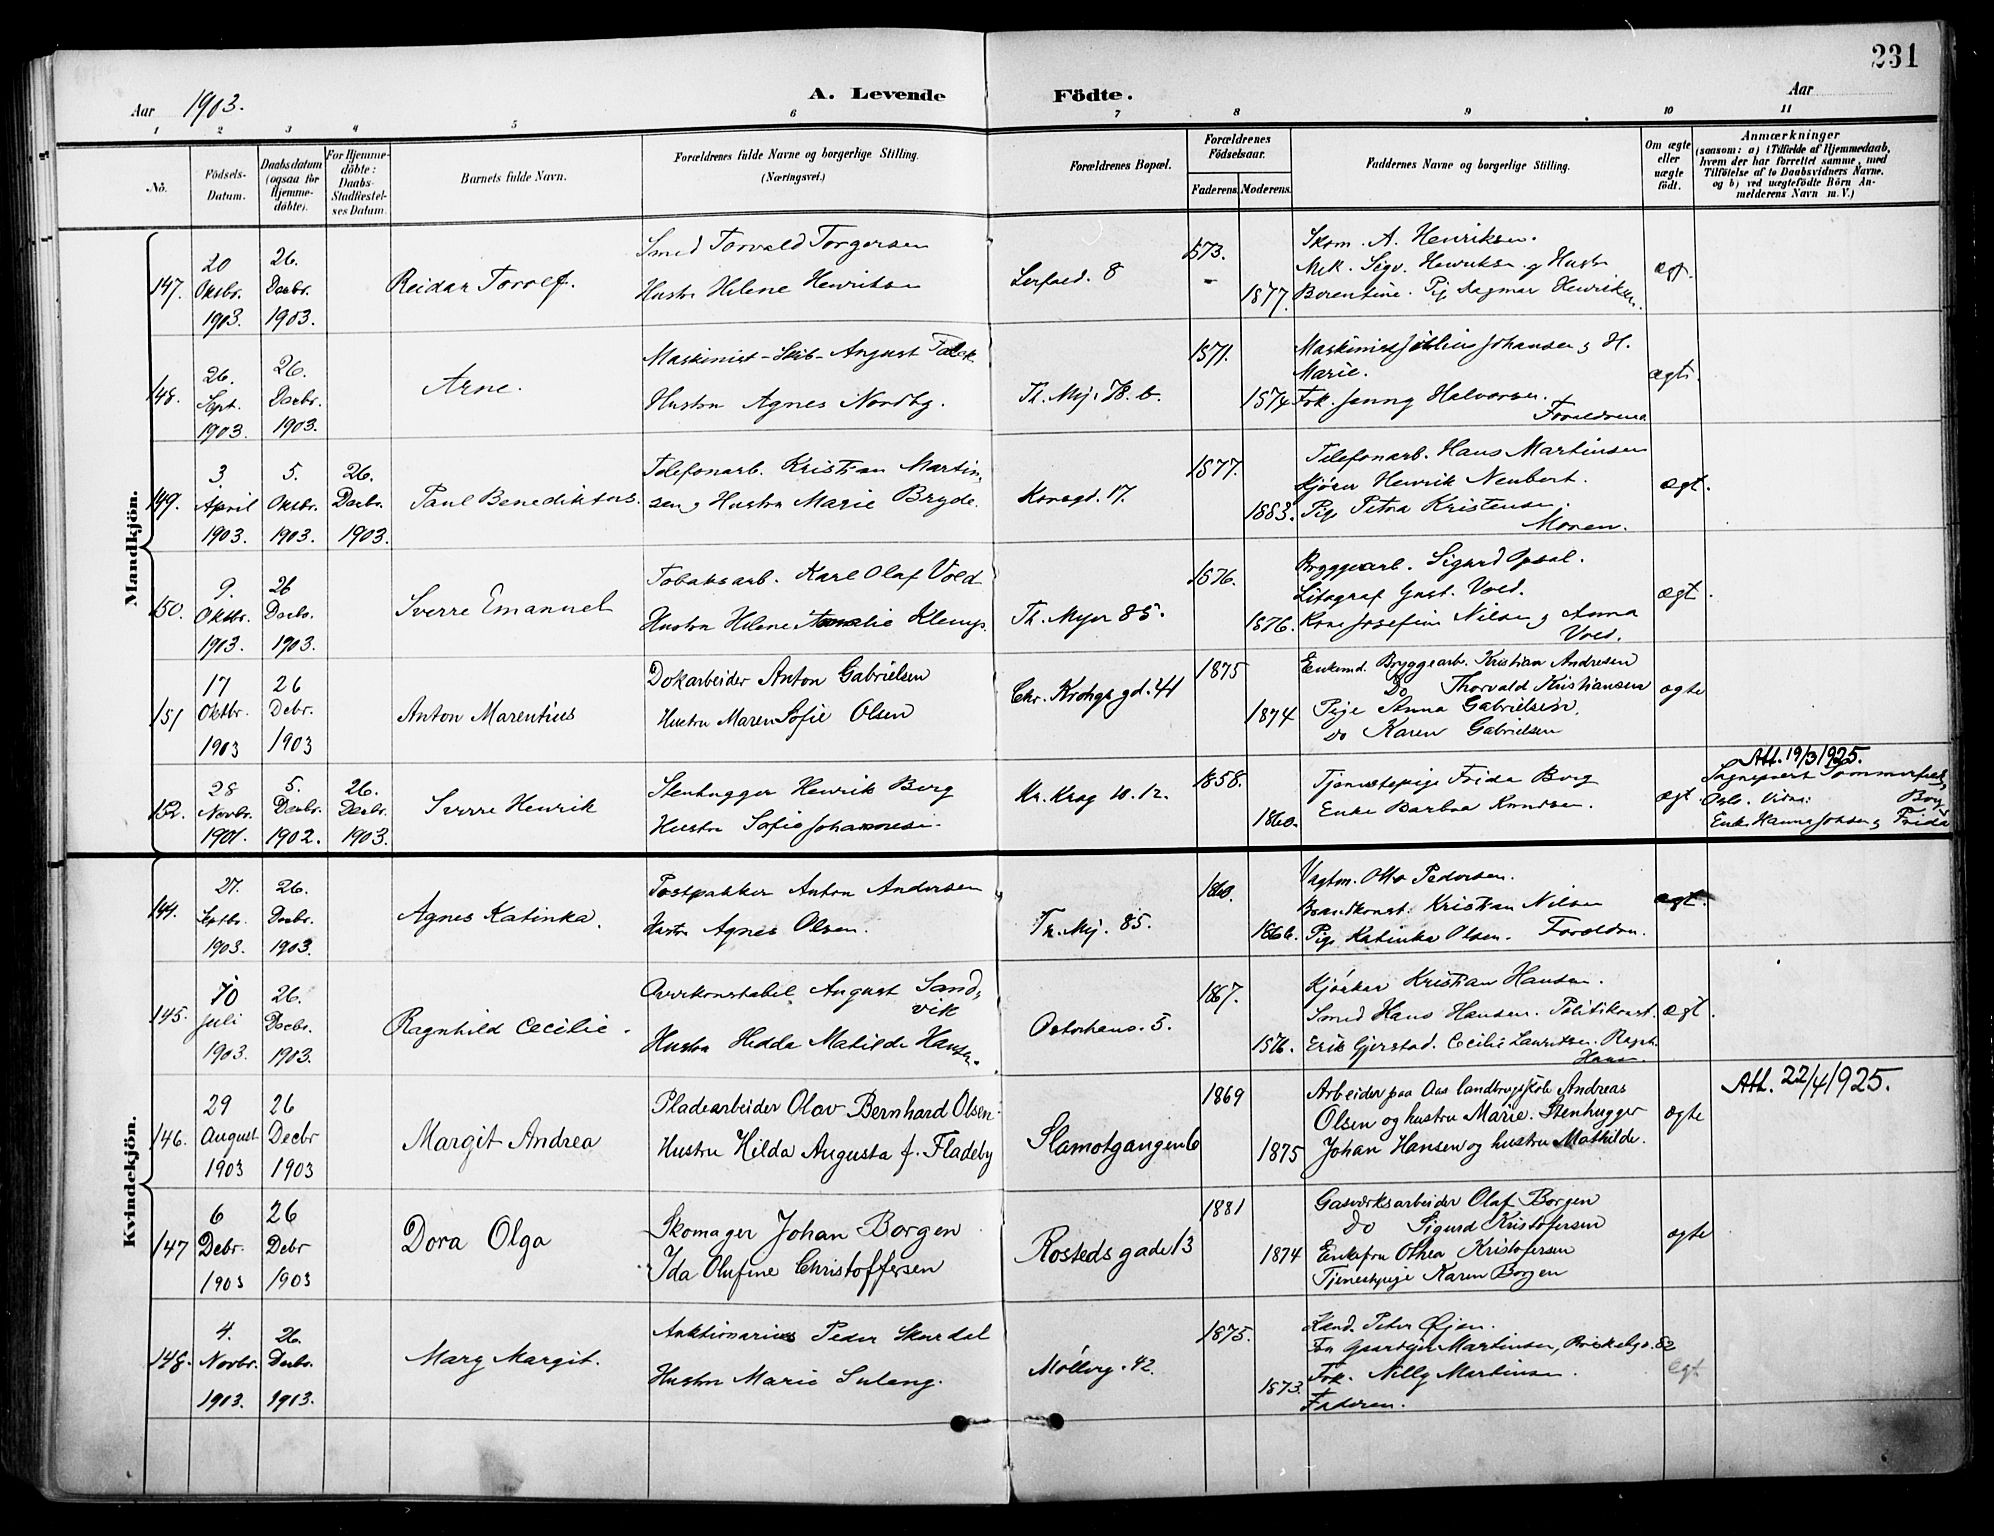 231
Aar 1903.
A. Levende Födte.
Aar
1 2 3 4 5 6 7 8 9 10 11
No.
Födsels-Datum.
Daabsdatum (ogsaa for Hjemmedöbte).
For Hjemmedöbte: Daabs-Stadfæstelses Datum.
Barnets fulde Navn.
Forældrenes fulde Navne og borgerlige Stilling. (Næringsvei.)
Forældrenes Bopæl.
Forældrenes Födselsaar.
Faderens. Moderens.
Faddernes Navne og borgerlige Stilling.
Om ægte eller uægte födt.
Anmærkninger (saasom: a) i Tilfælde af Hjemmedaab, hvem der har forrettet samme, med Tilföielse af to Daabsvidners Navne. og b) ved uægtefödte Börn Anmelderens Navn m. V.)
Mandkjön.
147. 20 Oktbr. 1903. 26. Decbr. 1903. Reidar Torolf.
Smed Torvald Torgersen
Hustr Helene Henriksen
8 1873. 1877.
Skom. A. Henriksen.
Mek. Sigv. Henriksen og Hustr
Berentine. Pig Dagmar Henriksen.
ægt.
148. 26. Sept. 1903. 26. Decbr. 1903. Arne.
Maskinist August Falck
Hustru Agnes Nordby.
Th. Mej. 78. b. 1871. 1874
Maskinist Julius Johansen og H.
Marie.
Frk. Jenny Halvorsen.
Forældrene
ægt.
149. 3. April 1903. 5. Oktbr. 1903. 26. Decbr. 1903. Paul Benediktus.
Telefonarb. Kristian Martin-
sen og Hustru Marie Bryde.
17. 1877. 1883.
Telefonarb. Hans Martinsen
Kjörer Henrik Neubert.
Pig Petra Kristensen.
Moren.
ægt.
150. 9. Oktbr. 1903. 26 Decbr. 1903. Sverre Emanuel
Tobaksarb. Karl Olaf Vold
Hustru Helene Amalie
Th. Myer 85. 1876. 1876.
Bryggearb. Sigurd Opsal.
Litograf Gust. Vold.
Kone Josefine Nilsen og Anna
Vold.
ægt.
151 17 Oktbr. 1903 26 Debr. 1903 Anton Marentius
Dokarbeider Anton Gabrielsen
Hustru Maren Sofie Olsen
Chr. Krohgs gd. 41 1875 1874
Enkemd. Bryggearb. Kristian Andresen
Do Thorvald Kristiansen
Pige Anna Gabrielsen.
Do Karen Gabrielsen
ægte
152. 28 Novbr. 1901. 5. Decbr. 1902. 26. Decbr. 1903. Sverre Henrik
Stenhugger Henrik Berg
Hustru Sofie Johannesen
Kr. Krog 10. 12. 1858. 1860.
Tjenestepige Frida Berg
Enke Barbra Knudsen.
ægt
Att. 19/3 1925.
Sogneprest Sommerfeldt,
Oslo. Vidner: Berg
Enke Hanna Johsen og Frida
Kvindekjön.
144. 27. Septbr. 1903. 26. Decbr. 1903. Agnes Katinka.
Postpakker Anton Andersen
Hustr Agnes Olsen.
Th. Mej. 85. 1860. 1866.
Vagtm. Otto Pedersen.
Brandkonst. Kristian Nilsen
Pige Katinka Olsen. Forældrene.
ægt.
145. 10 Juli 1903. 26. Decbr. 1903. Ragnhild Cecilie.
Overkonstabel August Sand-
vik
Hustru Hedda Matilde Hansen.
5. 1867. 1876.
Kjörkar Kristian Hansen.
Smed Hans Hansen. Politikonst.
Erik Gjerstad. Cecilie Lauritsen. Ragnh.
Hansen.
ægt.
146. 29 August 1903 26 Decbr 1903 Margit Andrea
Pladearbeider Olav Bernhard Olsen
Hustru Hilda Augusta f. Fladeby
Slamotgangen 6 1869 1875
Arbeider paa Aas landbrugskole Andreas
Olsen og hustru Marie. Stenhugger
Johan Hansen og hustru Mathilde.
ægte
Att. 22/4 1925.
147 6 Debr. 1903 26 Debr 1903 Dora Olga
Skomager Johan Borgen
Ida Olufine Christoffersen
Rosteds gade 13 1881 1874
Gasværksarbeider Olaf Borgen
Do Sigurd Kristofersen
Enkefru Othea Kristofersen
Tjenestpige Karen Borgen
ægte
148. 4. Novbr. 1903. 26. Decbr. 1903. Mary Margit.
Auktionarius Peder Skardal
Hustru Marie Suleng.
Möllerg. 42. 1875. 1873.
Kand. Peter Öjen.
Martinsen, 82
Frk. Nilly Martinsen
Faderen.
Egt